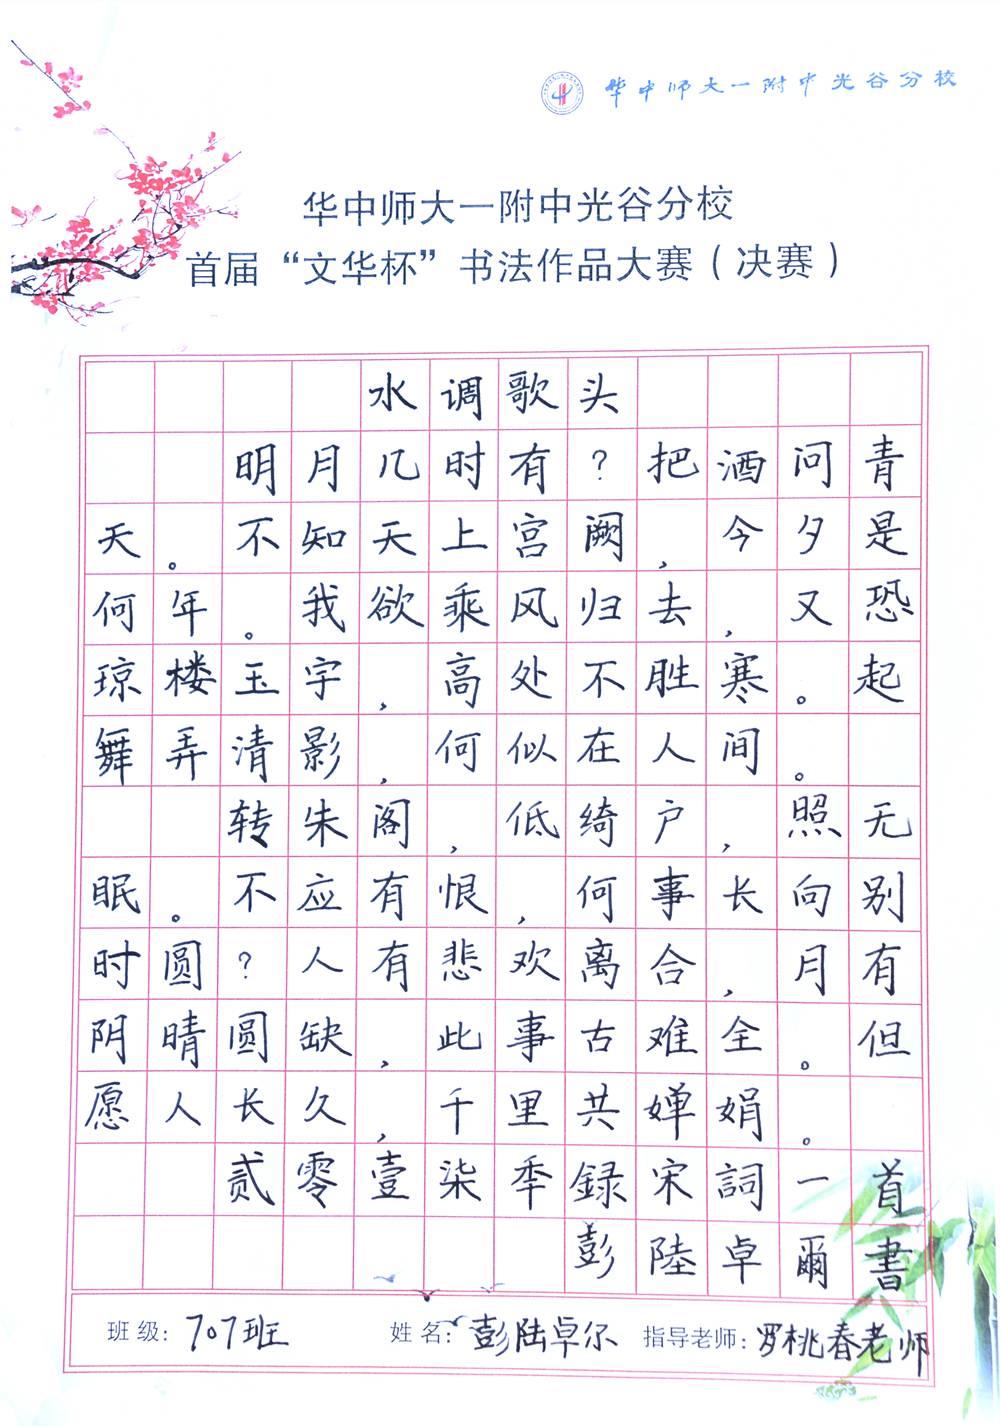 华中师大一附中光谷分校
华中师大一附中光谷分校
首届“文华杯”书法作品大赛（决赛）
水调歌头
明月几时有？把酒问青
天。不知天上宫阙，今夕是
何年。我欲乘风归去，又恐
琼楼玉宇，高处不胜寒。起
舞弄清影，何似在人间。
转朱阁，低绮户，照无
眠。不应有恨，何事长向别
时圆？人有悲欢离合，月有
阴晴圆缺，此事古难全。但
愿人长久，千里共婵娟。
贰零壹柒季録宋詞一首
彭陸卓爾書
班级：707班 姓名：彭陆卓尔 指导老师：罗桃春老师